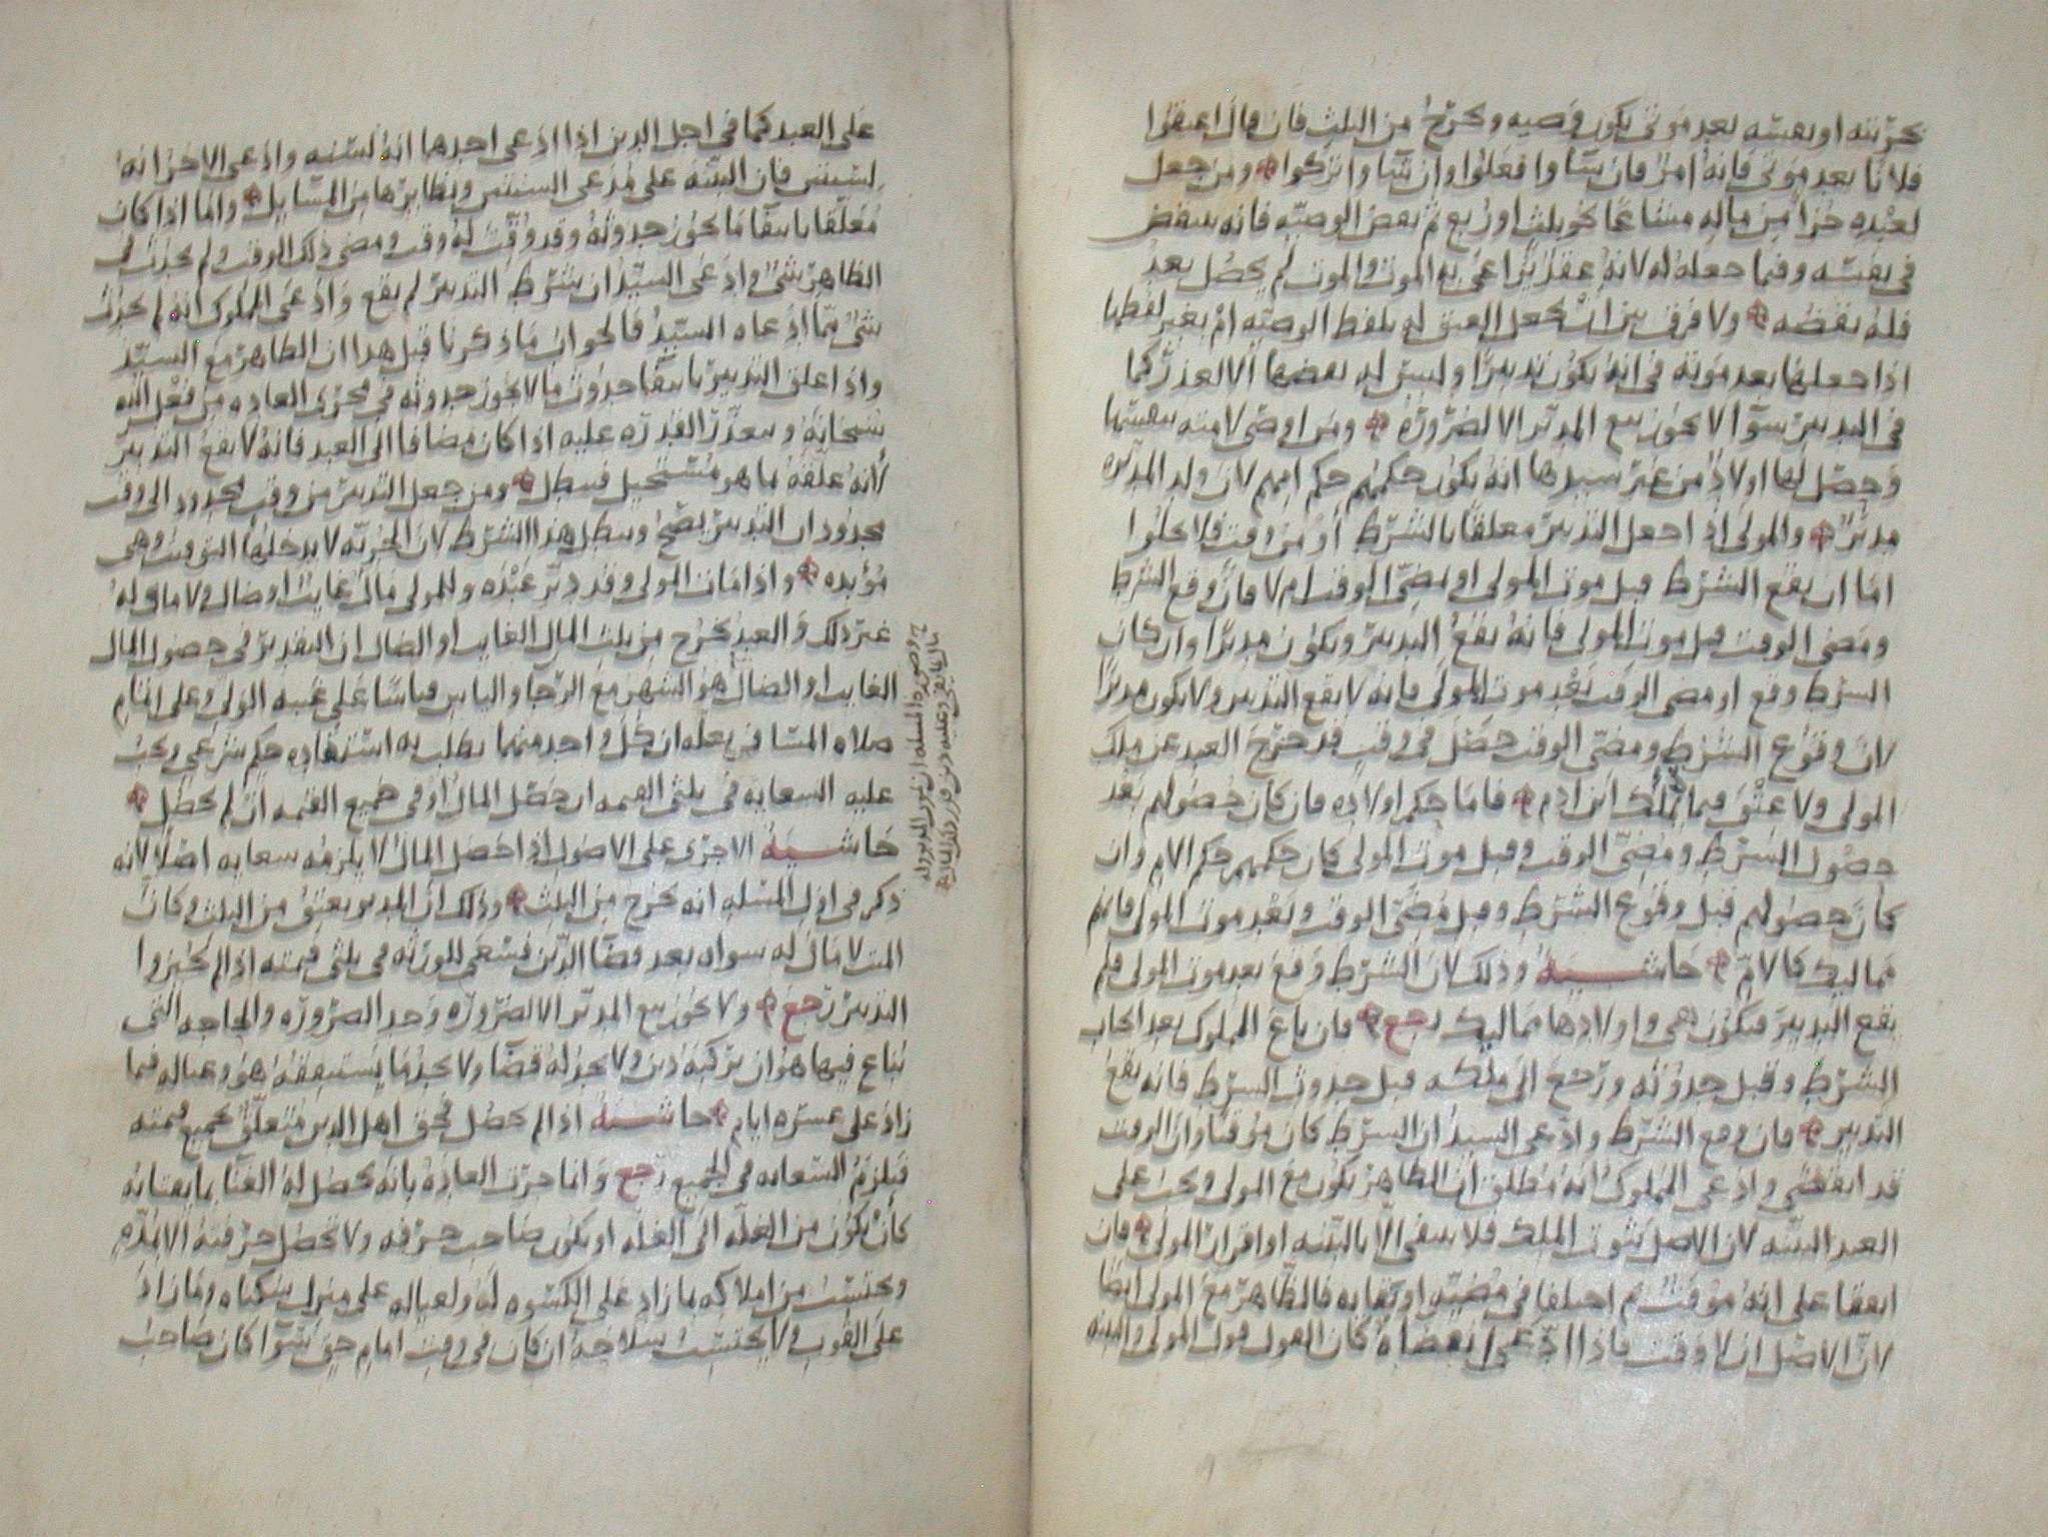 بحريته او بعتقه بعد موتي يكون وصيه ويخرج من الثلث فان قال اعتقوا
فلانا بعد موتي فانه امر فان شاوا فعلوا وان شاوا تركوا ومن جعل
لعبده جزا من ماله مشاعا نحو ثلث او ربع ثم نقض الوصيه فانه ينتقض
في نفسه وفيما جعله له لانه عقد يراعى به الموت والموت لم يحصل بعد
فله نقضه ولا فرق بين ان يجعل العتق له بلفظ الوصيه ام بغير لفظها
اذا جعلها بعد موته في انه يكون تدبيرا وليس له نقضها الا لعذر كما
في التدبير سوا لا يجوز بيع المدبر الا لضروره ومن اوصى لامته بنفسها
وحصل لها اولاد من غير سيدها انه يكون حكمهم حكم امهم لان ولد المدبره
مدبر والمولى اذا جعل التدبير معلقا بالشرط او من وقت فلا يخلوا
اما ان يقع الشرط قبل موت المولى او يمضي الوقت ام لا فان وقع الشرط
ومضى الوقت قبل موت المولى فانه يقع التدبير ويكون مدبرا وان كان
الشرط وقع او مضى الوقت بعد موت المولى فانه لا يقع التدبير ولا يكون مدبرا
لان وقوع الشرط ومضي الوقت حصل في وقت قد خرج العبد عن ملك
المولى ولا عتق فيما لا يملك ابن ادم فاما حكم اولاده فان كان حصولهم بعد
حصول الشرط ومضي الوقت وقبل موت المولى كان حكمهم حكم الام وان
كان حصولهم قبل وقوع الشرط وقبل مضي الوقت وبعد موت المولى فانهم
مماليك كالام حاشيه وذلك لان الشرط وقع بعد موت المولى فلم
يقع التدبير فيكون هي واولادها مماليك رجع فان باع المملوك بعد ايجاب
الشرط وقبل حدوثه ورجع الى ملكه قبل حدوث الشرط فانه يقع
التدبير فان وقع الشرط وادعى السيد ان الشرط كان موقتا وان الوقت
قد انقضى وادعى المملوك انه مطلق ان الظاهر يكون مع المولى ويجب على
العبد البينه لان الاصل ثبوت الملك فلا ينتفى الا بالبينه او اقرار المولى فان
اتفقا على انه موقت ثم اختلفا في مضيه او بقايه فالظاهر مع المولى ايضا
لان الاصل ان لا وقت فاذا ادعى انقضاه كان القول قول المولى والبينه
على العبد كما في اجل الدين اذا ادعى احدها انه لسنه وادعى الاخر انه
لسنتين فان البينه على مدعى السنتين ونظايرها من المسايل واما اذا كان
معلقا بانتفا ما يجوز حدوثه وقد وقت له وقت ومضى ذلك الوقت ولم يحدث في
الظاهر شي وادعى السيد ان بشرط التدبير لم يقع وادعى المملوك انه لم يحدث
شي مما ادعاه السيد فالجواب ما ذكرنا قبل هذا ان الظاهر مع السيد
واذا علق التدبير بانتفا حدوث ما لا يجوز حدوثه في مجرى العاده من فعل الله
سبحانه وتتعذر القدره عليه اذا كان مضافا الى العبد فانه لا يقع التدبير
لانه علقه بما هو مستحيل فبطل ومن جعل التدبير من وقت محدود الى وقت
محدود ان التدبير يصح ويبطل هذا الشرط لان الحريه لا يدخلها التوقيت وهي
موبده واذا مات المولى وقد دبر عبده وللمولى مال غايب او ضال ولا مال له
غير ذلك والعبد يخرج من ثلث المال الغايب او الضال ان التقدير في حصول المال
الغايب او الضال هو الشهر مع الرجا والياس قياسا على غيبه الولي وعلى اتمام
صلاه المسافر بعله ان كل واحد منهما يطلب به استفاده حكم شرعي ويجب
عليه السعايه في ثلثي القيمه ان حصل المال او في جميع القيمه ان لم يحصل
حاشيه الاجرى على الاصول اذا حصل المال لا يلزمه سعايه اصلا لانه
ذكر في اول المسله انه يخرج من الثلث وذلك ان المدبر يعتق من الثلث وكان
الميت لا مال له سواه بعد قضا الدين فسعى للورثه في ثلثي قيمته اذا لم يجيزوا
التدبير رجع ولا يجوز بيع المدبر الا لضروره وحد الضروره والحاجه التي
يباع فيها هو ان يركبه دين ولا يجد له قضا ولا يجد ما يستنفقه هو وعياله فيما
زاد على عشره ايام حاشيه اذا لم يحصل فحق اهل الدين متعلق بجميع قيمته
فيلزم السعايه في الجميع رجع وانما جرت العاده بانه يحصل له الغنا بانقضايه
كان يكون من الغله الى الغله او يكون صاحب حرفه ولا تحصل حرفته الا لمده
ويحتسب من املاكه ما زاد على الكسوه له ولعياله على منزل سكناه وما زاد
على القوت ولا يحتسب سلاحه ان كان في وقت امام حق سوا كان صاحب